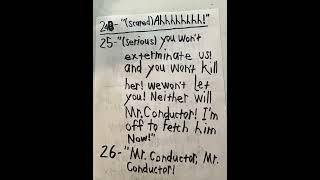 24-"(scared)Ahhhhhhhh!"
25-"(serious) you won't
exterminate us!
and you won't kill
her! we won't let
you! Neither will
Mr.Conductor! I'm
off to fetch him
Now!"
26-"Mr. Conductor, Mr.
Conductor!